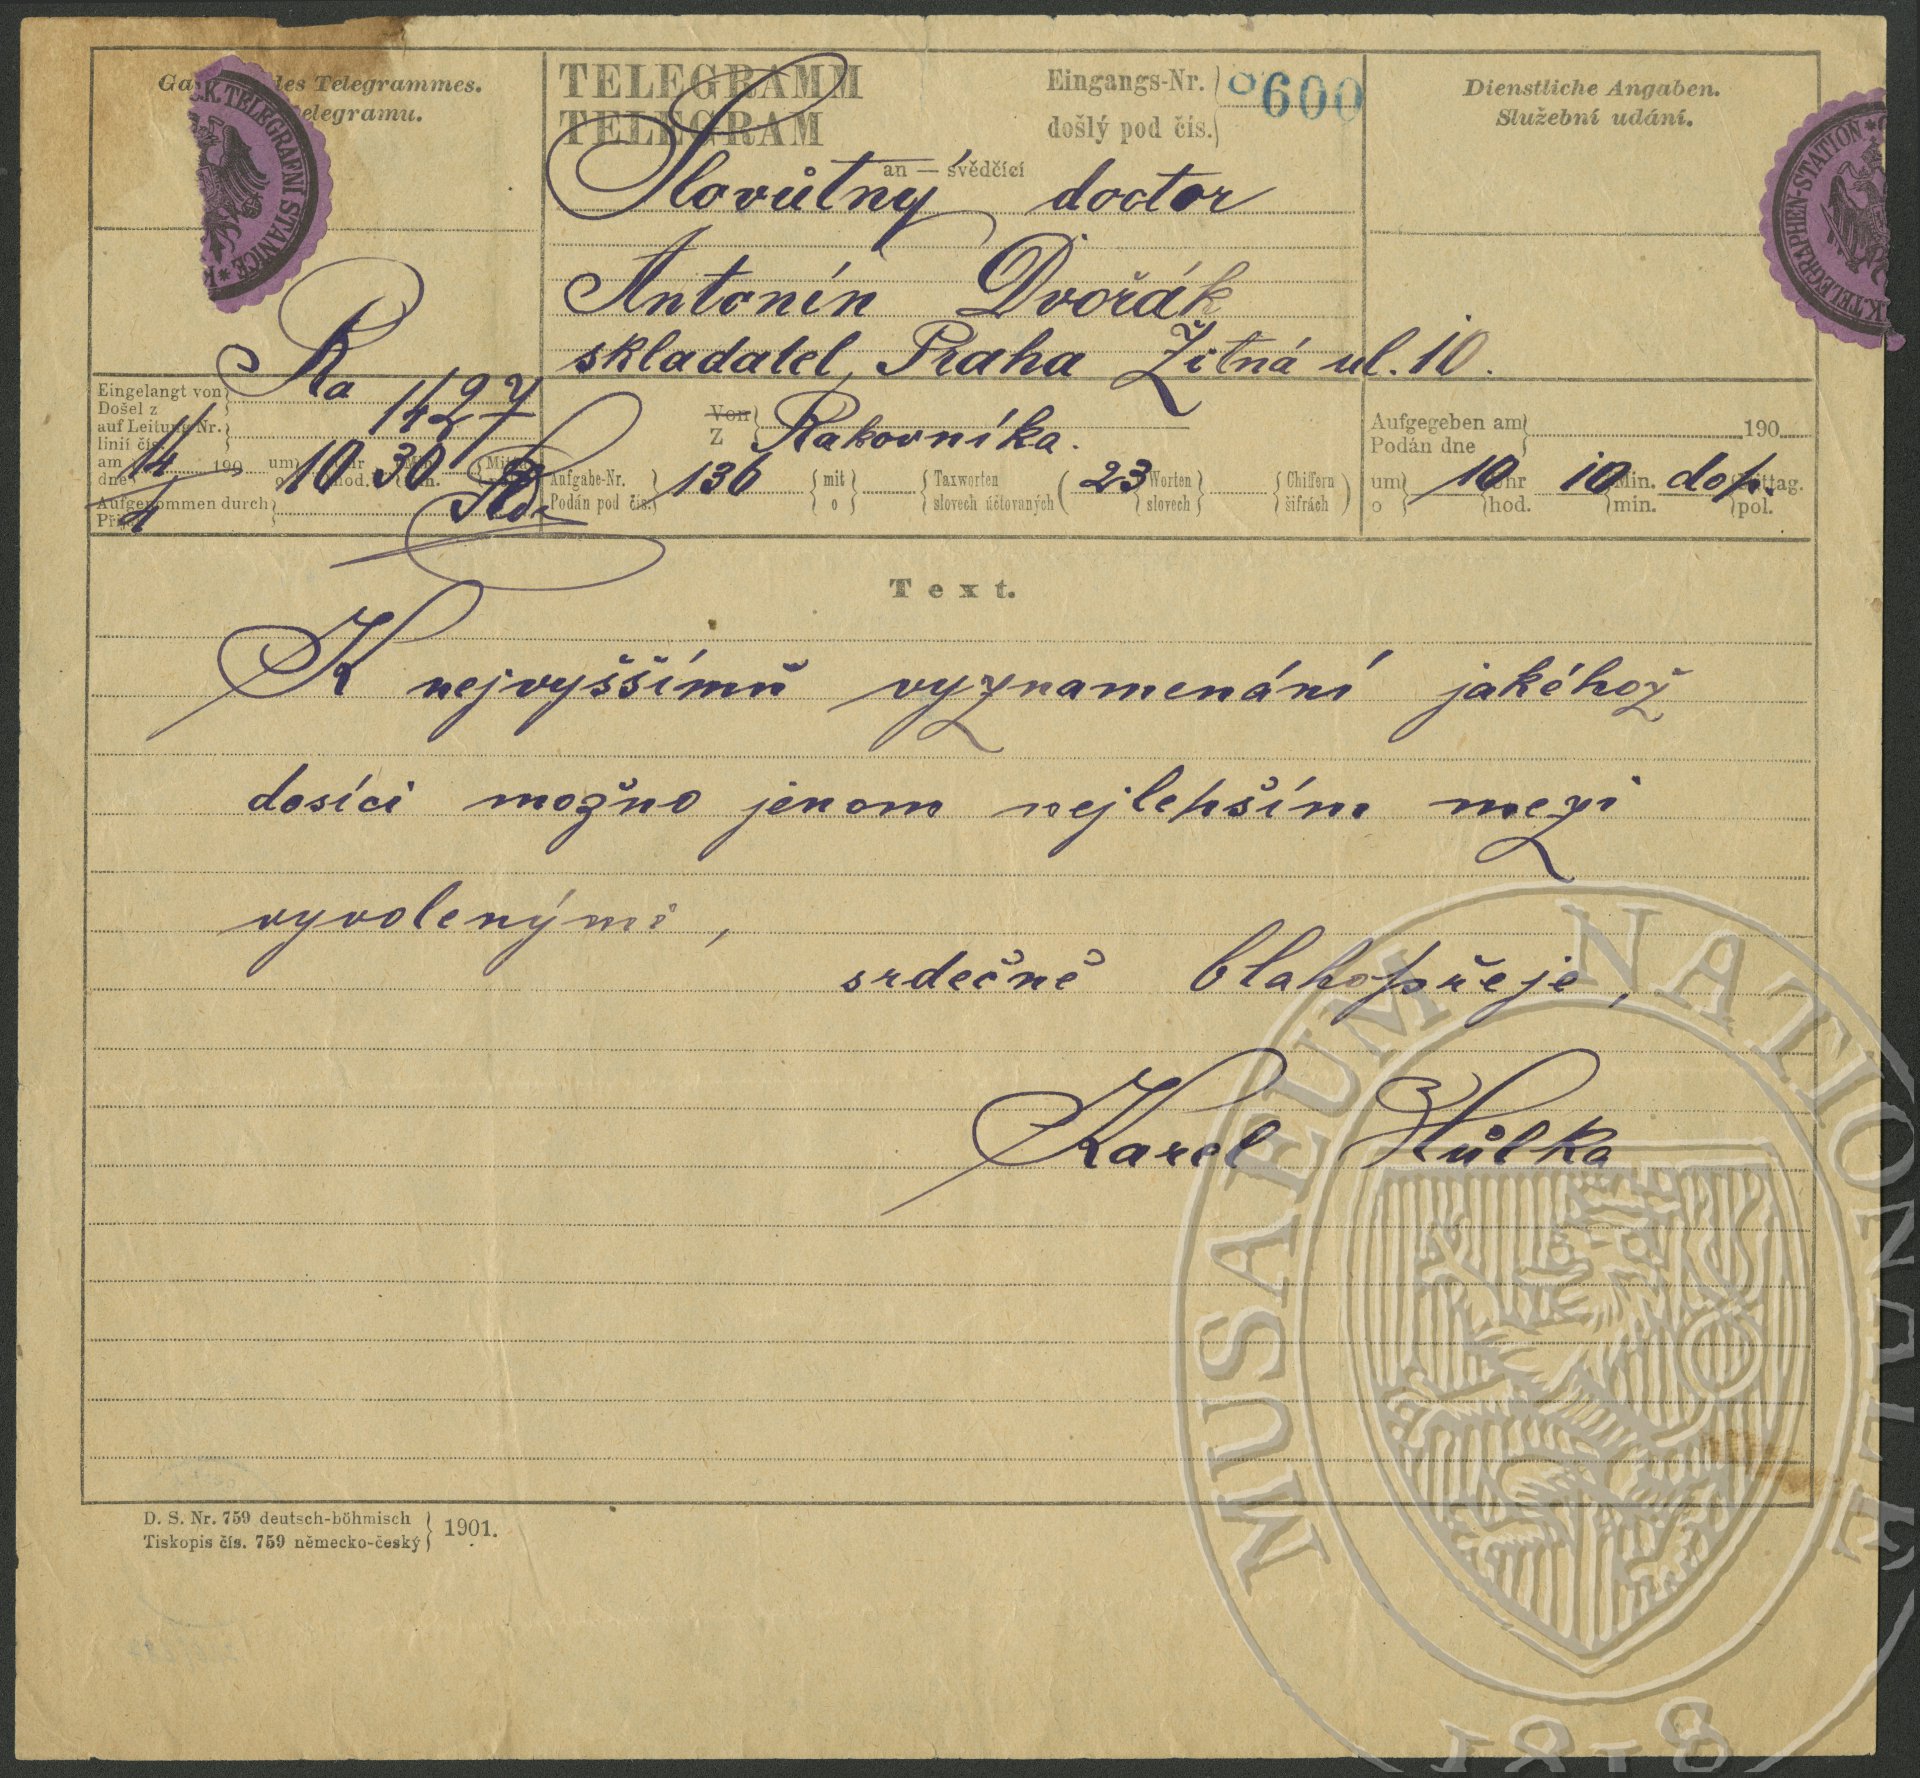 des Telegrammes.
elegramu.
K. TELEGRAFNÍ STANICE *
TELEGRAMM
TELEGRAM
Eingangs-Nr.
došlý pod čís.
600
an — svědčící
Dienstliche Angaben.
Služební udání.
TELEGRAPHEN-STATION *
Slovůtný doctor
Antonín Dvořák
skladatel, Praha Žitná ul. 10.
Ra
Eingelangt von
Došel z
1427
auf Leitung Nr.
linií čís.
am 14 190 um 10 30
dne
4
Aufgenommen durch
Von
Z
Rakovníka.
Aufgabe-Nr.
Podán pod čís.
136
mit
o
Taxworten
slovech účtovaných
( 23
Worten
slovech
Chiffern
šifrách
)
Aufgegeben am
Podán dne
190
um
o
10 Uhr
hod.
10 Min.
min.
dop. Mittag.
pol.
Text.
K nejvyššímŭ vyznamenání jakéhož
dosíci možno jenom nejlepším mezi
vyvolenými,
srdečně blahopřeje,
Karel Hůlka
D. S. Nr. 759 deutsch-böhmisch
Tiskopis čís. 759 německo-český
1901.
MUSAEUM NATIONALE
1818